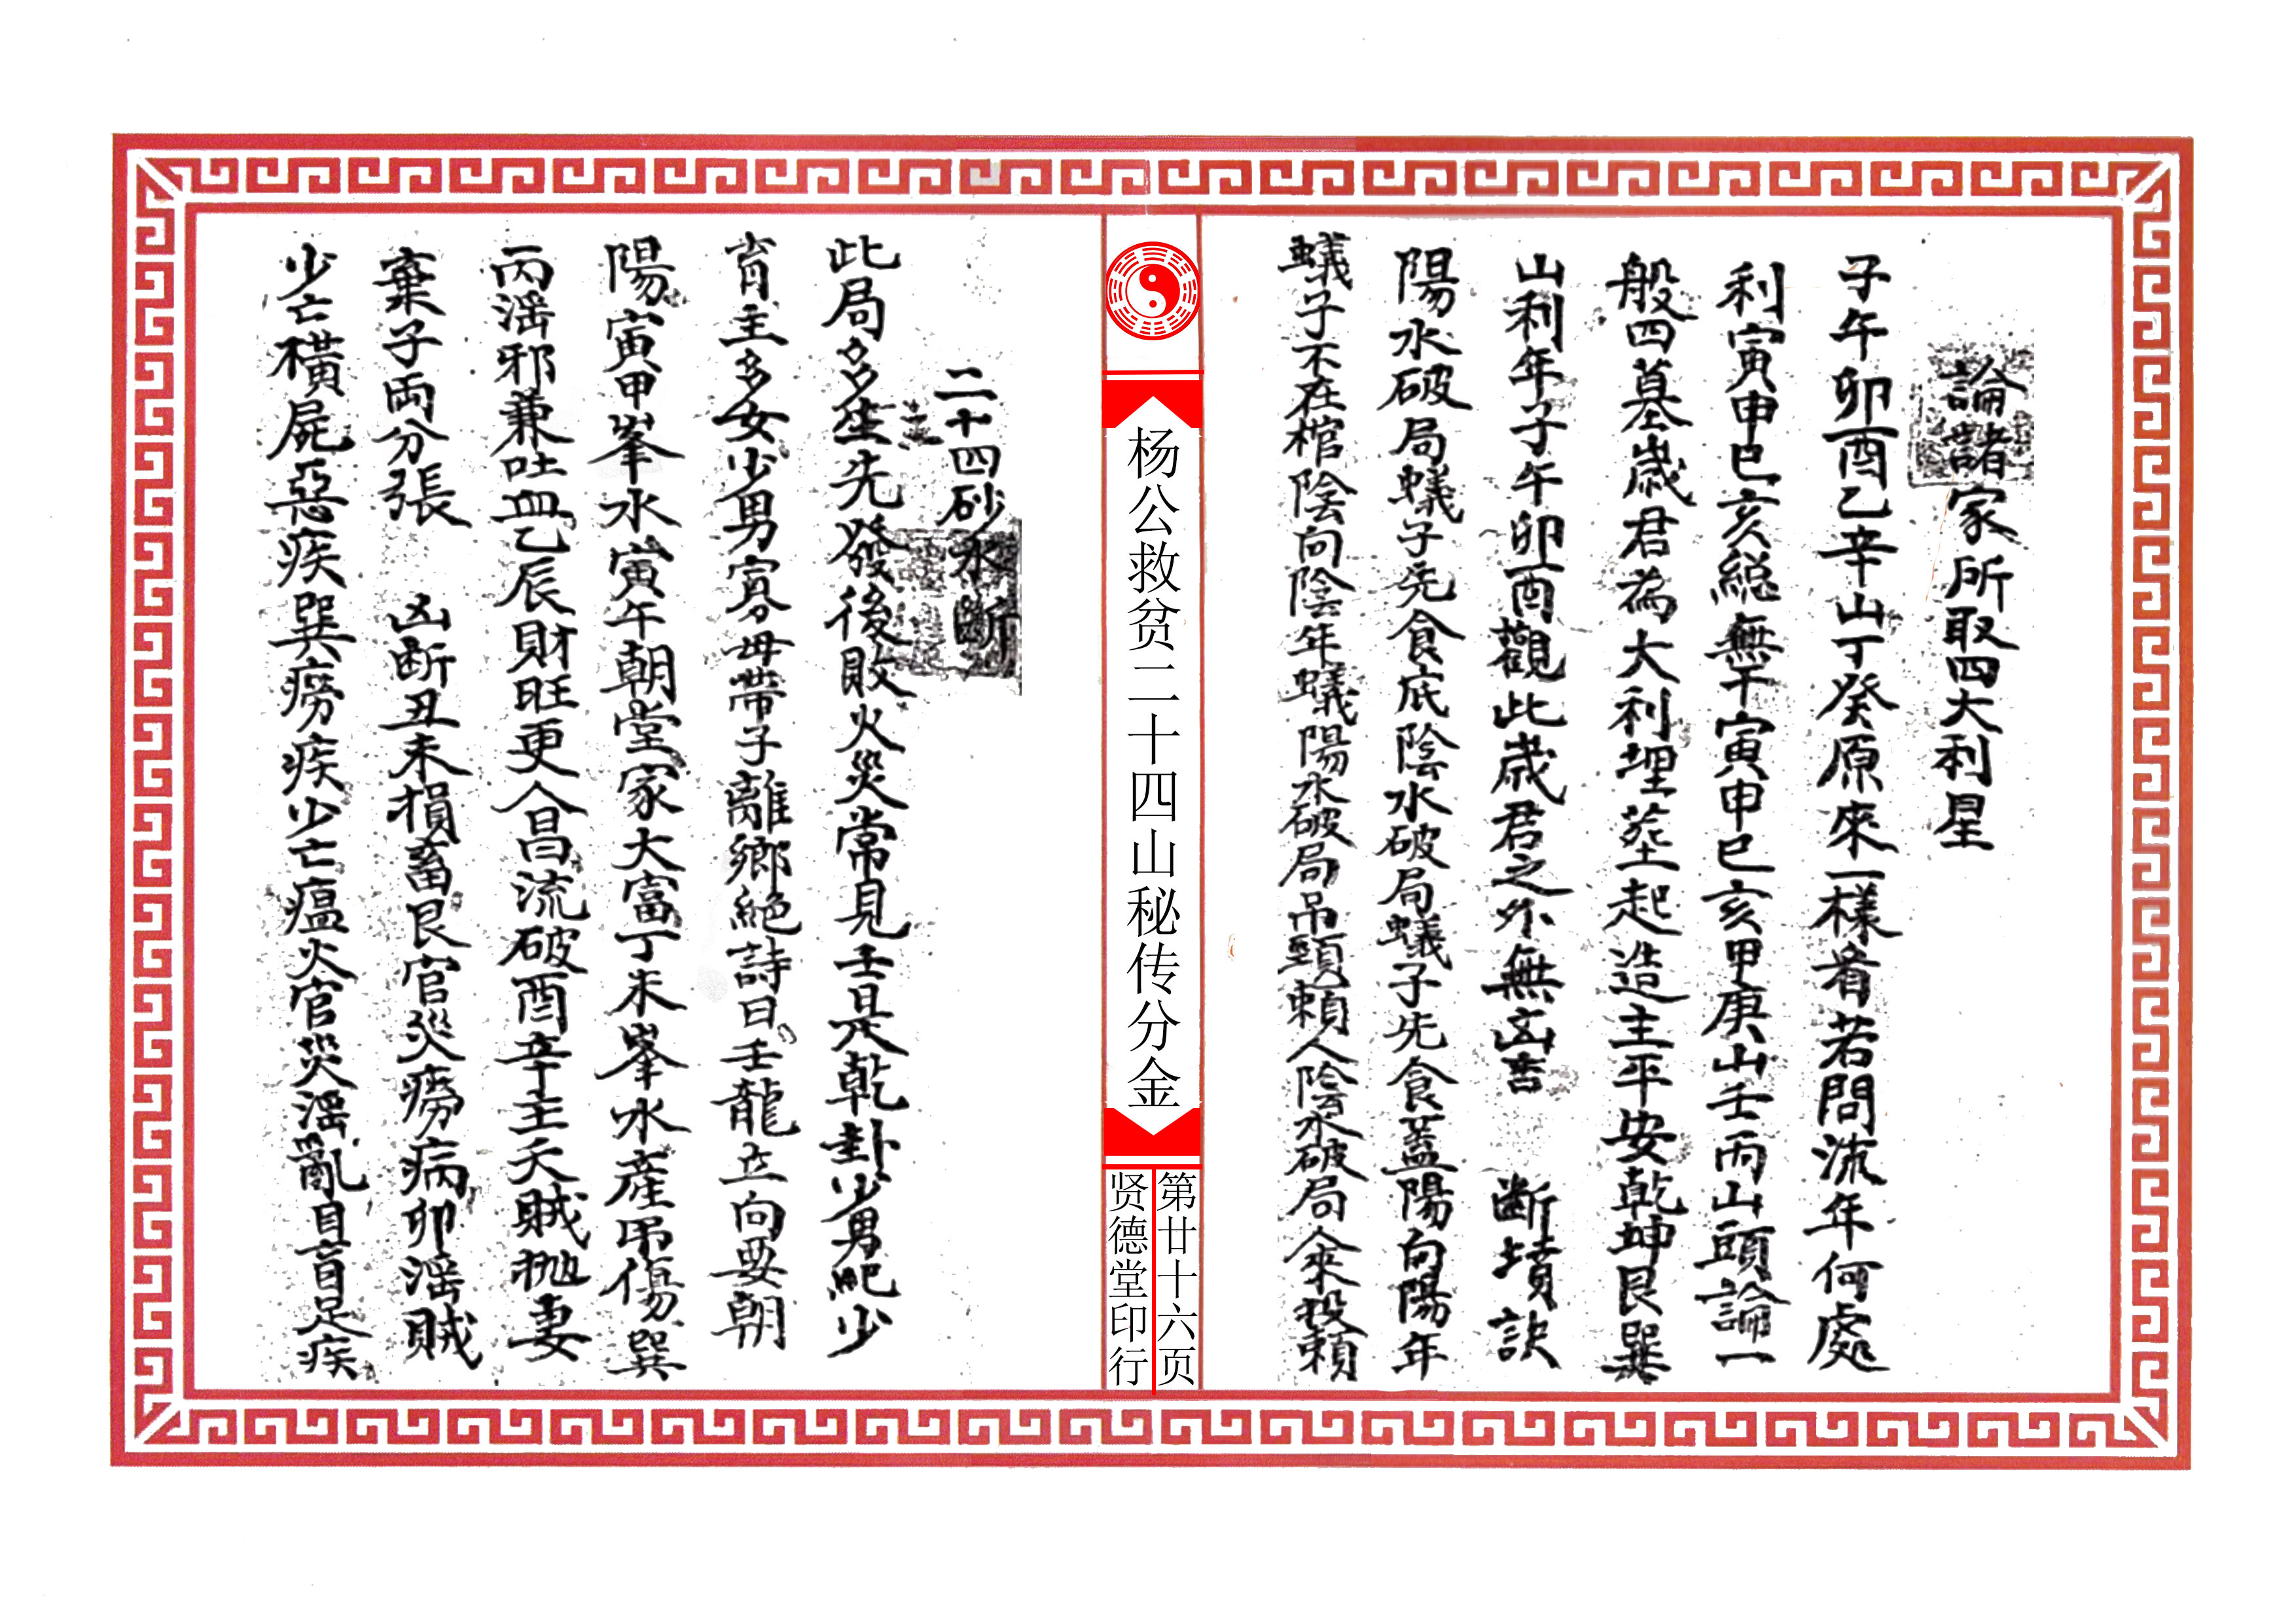 論諸家所取四大利星
子午卯酉乙辛山丁癸原來一樣看若問流年何處
利寅申巳亥總無干寅申巳亥甲庚山壬丙山頭論一
般四墓歲君為大利埋塟起造主平安乾坤艮巽
山利年子午卯酉觀此歲君之外無凶吉 斷墳訣
陽水破局蟻子先食底陰水破局蟻子先食蓋陽向陽年
蟻子不在棺陰向陰年蟻陽水破局吊頸賴人陰水破局人來投賴
杨公救贫二十四山秘传分金
第廿十六页
贤德堂印行
二十四砂水斷
此局多生先發後敗火災常見壬是乾卦少男紀少
肯主多女少男寡母帶子離鄉絕詩曰壬龍立向要朝
陽寅甲峯水寅午朝堂家大富丁未峯水產吊傷巽
丙滛邪兼吐血乙辰財旺更人昌流破酉辛主夭賊抛妻
棄子両分張 凶断丑未損畜艮官災癆病卯滛賊
少亡橫屍惡疾巽癆疾少亡瘟火官災滛亂目盲足疾